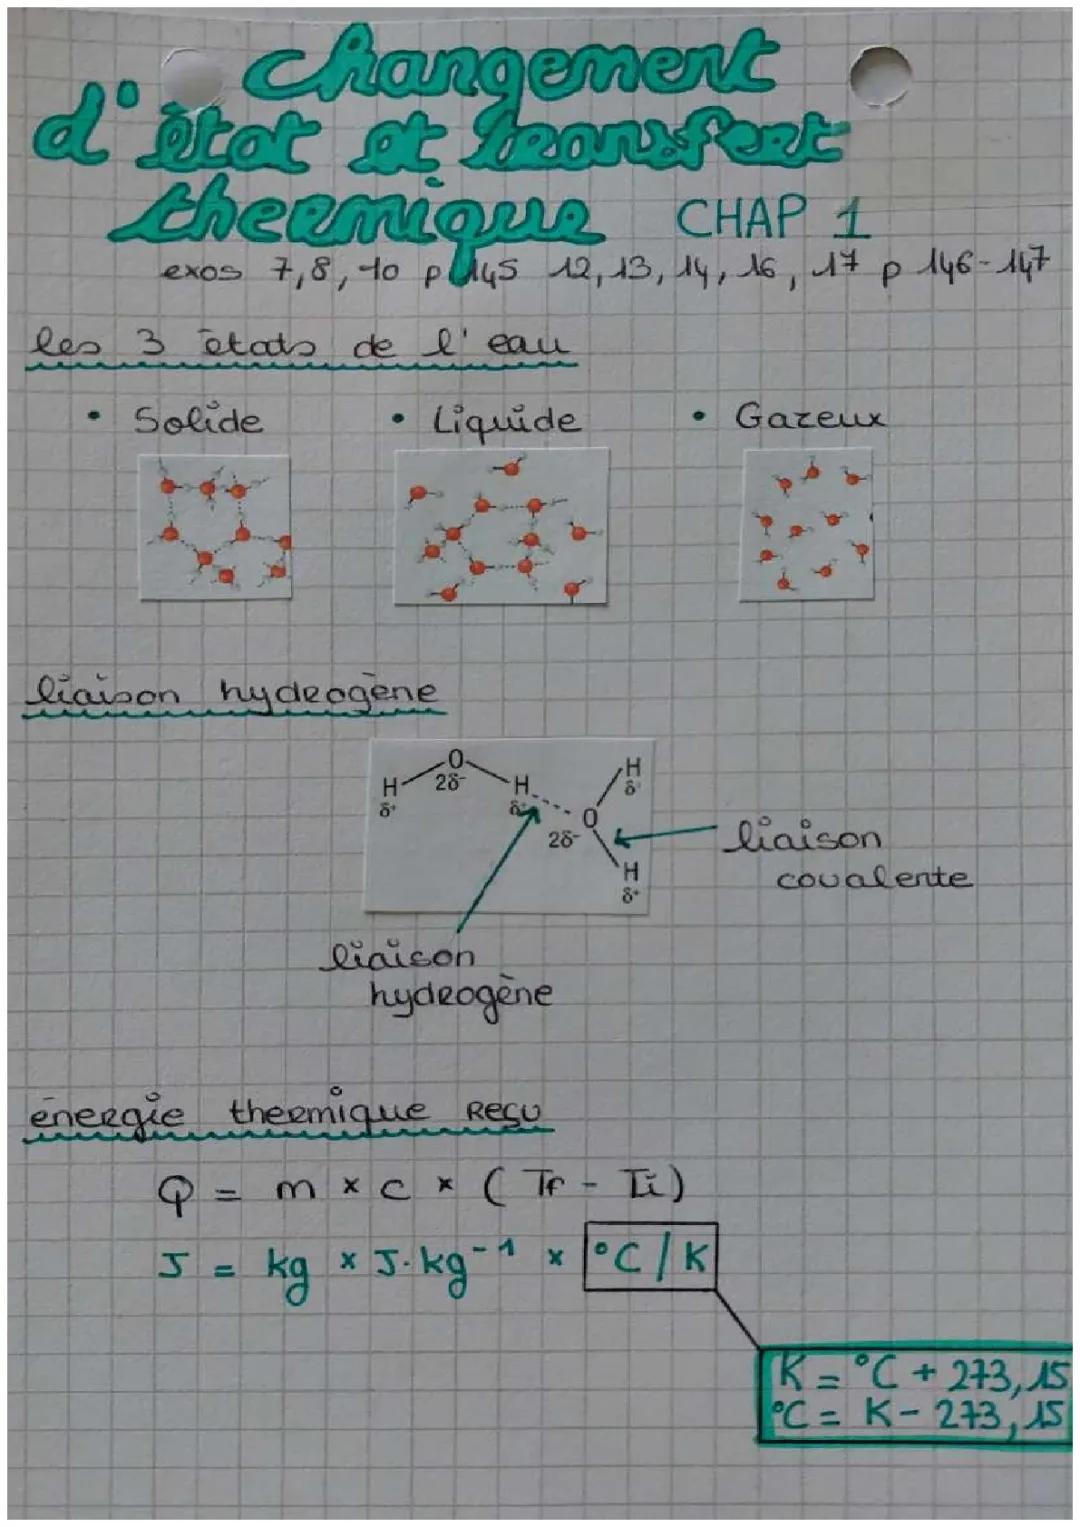 Changement
d'état et transfert
thermique CHAP 1
exos 7, 8, 10 p 145 12, 13, 14, 16, 17 p 146-147
les 3 états de l'eau
• Solide • Liquide • Gazeux
liaison hydrogène
O H
H 2δ- H δ+
δ+ δ+ O
2δ-
H
δ+
liaison
covalente
liaison
hydrogène
énergie thermique reçu
Q = m × c × (Tf - Ti)
J = kg × J.kg⁻¹ × °C / K
K = °C + 273,15
°C = K - 273,15